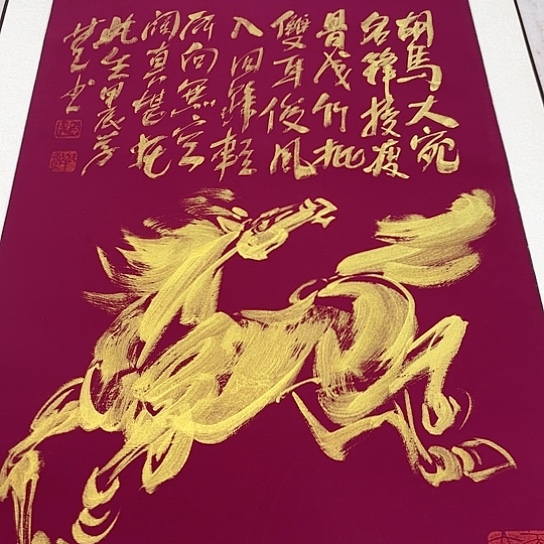 胡馬大宛
名鋒棱瘦
骨成竹批
雙耳俊風
入四蹄輕
所向無空
闊真堪托
死生甲辰
書